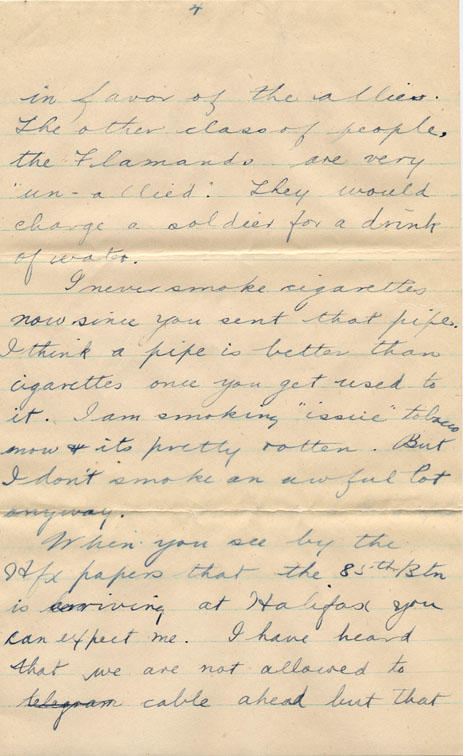 4
in favor of the allies.
The other class of people,
the Flamands are very
"un-allied". They would
charge a soldier for a drink
of water.
I never smoke cigarettes
now since you sent that pipe.
I think a pipe is better than
cigarettes once you get used to
it. I am smoking "issue" tobacco
now & its pretty rotten. But
I don't smoke an awful lot
anyway.
When you see by the
Hfx papers that the 85th Btn
is arriving at Halifax you
can expect me. I have heard
that we are not allowed to
telegram cable ahead but that